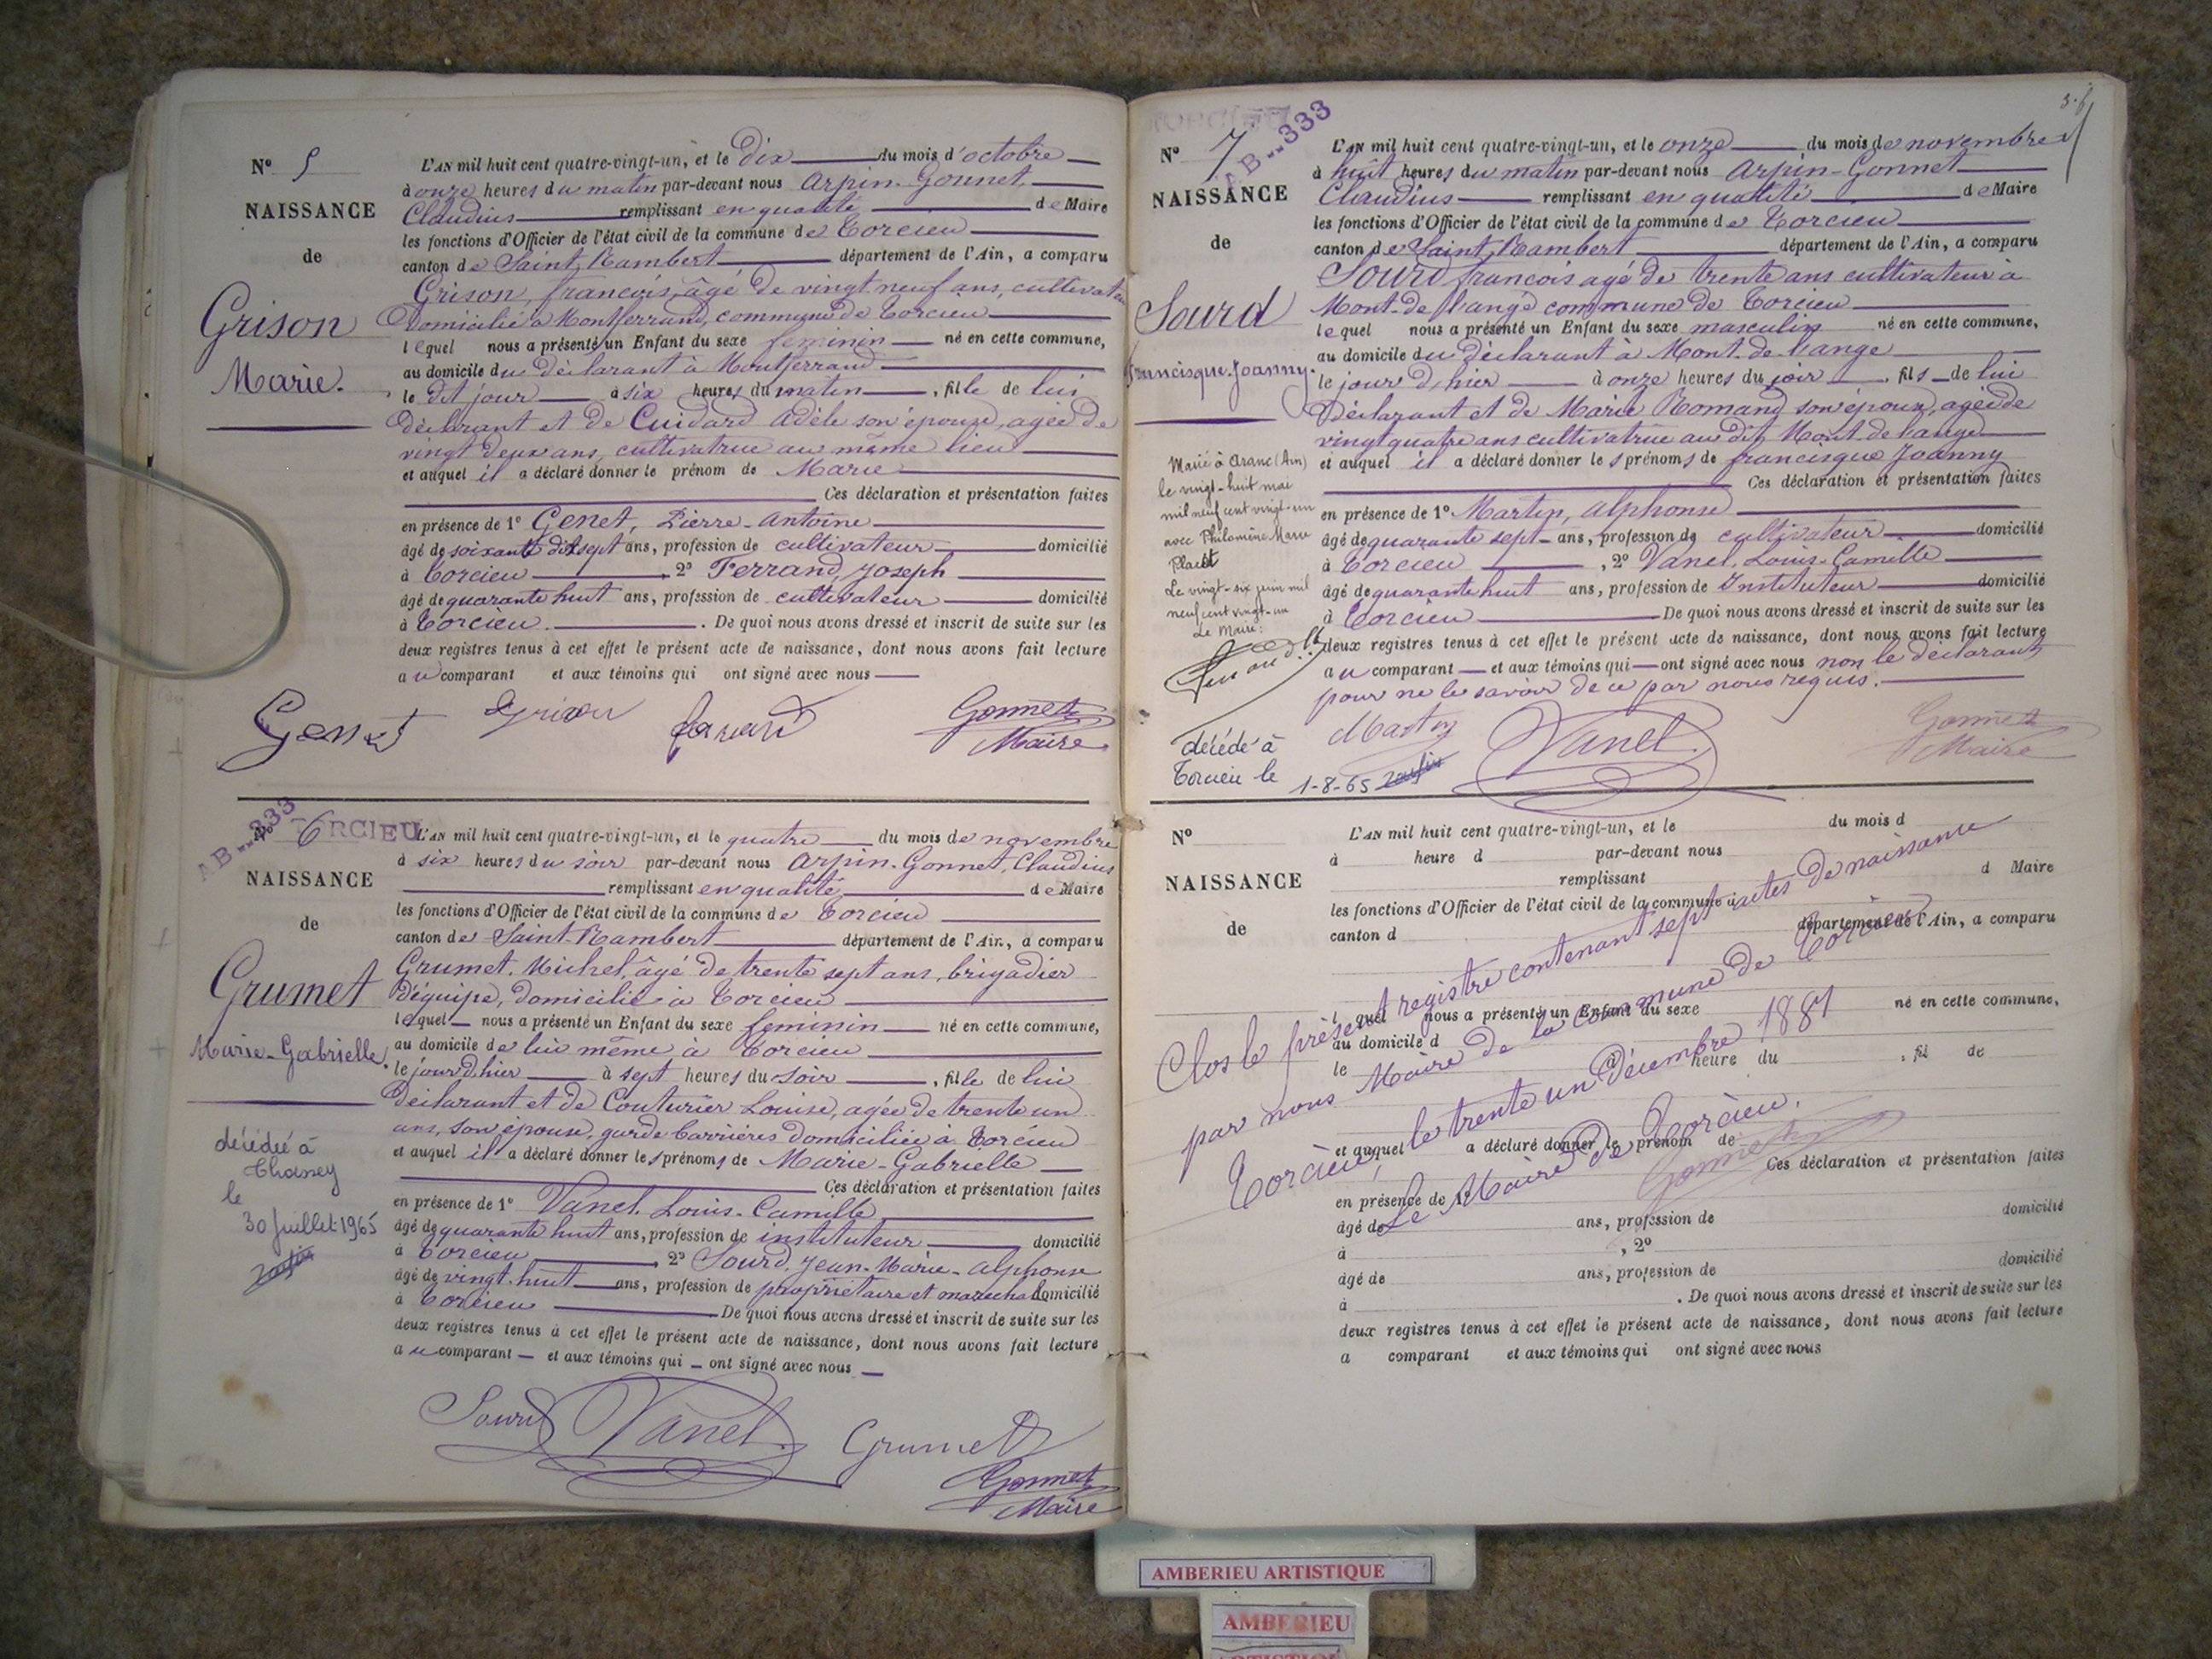 N° 5
NAISSANCE
de
Grison
Marie.
L'AN mil huit cent quatre-vingt-un, et le dix du mois d'octobre
à onze heures du matin par-devant nous Arpin-Gonnet,
Claudius remplissant en qualité de Maire
les fonctions d'Officier de l'état civil de la commune de Torcieu
canton de Saint Rambert département de l'Ain, a comparu
Grison, françois, âgé de vingt neuf ans, cultivateur
domicilié à Montferrand, commune de Torcieu
lequel nous a présenté un Enfant du sexe feminin né en cette commune,
au domicile du déclarant à Montferrand
le dit jour à six heures du matin, fille de lui
déclarant et de Cuidard Adèle son épouse, agée de
vingt deux ans, cultivatrice au même lieu
et auquel il a déclaré donner le prénom de Marie
Ces déclaration et présentation faites
en présence de 1° Genet, Pierre-Antoine
âgé de soixante dix sept ans, profession de cultivateur domicilié
à Torcieu, 2° Ferrand, Joseph
âgé de quarante huit ans, profession de cultivateur domicilié
à Torcieu. De quoi nous avons dressé et inscrit de suite sur les
deux registres tenus à cet effet le présent acte de naissance, dont nous avons fait lecture
au comparant et aux témoins qui ont signé avec nous
Genet Grison ferrand Gonnet
Maire
AB--333 TORCIEU
N° 6
NAISSANCE
de
Grumet
Marie-Gabrielle.
L'AN mil huit cent quatre-vingt-un, et le quatre du mois de novembre
à six heures du soir par-devant nous Arpin-Gonnet, Claudius
remplissant en qualité de Maire
les fonctions d'Officier de l'état civil de la commune de Torcieu
canton de Saint-Rambert département de l'Ain, a comparu
Grumet. Michel, âgé de trente sept ans, brigadier
d'équipe, domicilié à Torcieu
lequel nous a présenté un Enfant du sexe feminin né en cette commune,
au domicile de lui même à Torcieu
le jour d'hier à sept heures du soir, fille de lui
déclarant et de Couturier Louise, agée de trente un
ans, son épouse, garde barrières domiciliée à Torcieu
et auquel il a déclaré donner les prénoms de Marie-Gabrielle
Ces déclaration et présentation faites
en présence de 1° Vanel. Louis-Camille
âgé de quarante huit ans, profession de instituteur domicilié
à Torcieu, 2° Sourd, Jean-Marie-Alphonse
âgé de vingt-huit ans, profession de propriétaire et marechal domicilié
à Torcieu De quoi nous avons dressé et inscrit de suite sur les
deux registres tenus à cet effet le présent acte de naissance, dont nous avons fait lecture
au comparant et aux témoins qui ont signé avec nous
décédée à
le
30 Juillet 1965
Sourd Vanel Grumet
Gonnet
Maire
AB--333
N° 7
NAISSANCE
de
Sourd
francisque-Joanny.
L'AN mil huit cent quatre-vingt-un, et le onze du mois de novembre
à huit heures du matin par-devant nous Arpin-Gonnet
Claudius remplissant en qualité de Maire
les fonctions d'Officier de l'état civil de la commune de Torcieu
canton de Saint Rambert département de l'Ain, a comparu
Sourd françois agé de trente ans cultivateur à
Mont-de-l'ange commune de Torcieu
lequel nous a présenté un Enfant du sexe masculin né en cette commune,
au domicile du déclarant à Mont-de-l'ange
le jour d'hier à onze heures du soir, fils de lui
déclarant et de Marie Romand son épouse, agée de
vingt quatre ans cultivatrice au dit Mont-de-l'ange
et auquel il a déclaré donner les prénoms de francisque Joanny
Ces déclaration et présentation faites
en présence de 1° Martin, Alphonse
âgé de quarante sept ans, profession de cultivateur domicilié
à Torcieu, 2° Vanel, Louis-Camille
âgé de quarante huit ans, profession de Instituteur domicilié
à Torcieu De quoi nous avons dressé et inscrit de suite sur les
deux registres tenus à cet effet le présent acte de naissance, dont nous avons fait lecture
au comparant et aux témoins qui ont signé avec nous non le déclarant
pour ne le savoir de ce par nous requis.
Marié à Aranc (Ain)
le vingt-huit mai
mil neuf cent vingt-un
avec Philomène Marie
Le vingt-six juin mil
neuf cent vingt-un
Le Maire:
décédé à
Torcieu le 1-8-65
Martin Vanel. Gonnet
Maire
N°
NAISSANCE
de
L'AN mil huit cent quatre-vingt-un, et le du mois d
à heure d par-devant nous
remplissant d Maire
les fonctions d'Officier de l'état civil de la commune d
canton d département de l'Ain, a comparu
l quel nous a présenté un Enfant du sexe né en cette commune,
au domicile d
le à heure du , fil de
et auquel a déclaré donner le prénom de
Ces déclaration et présentation faites
en présence de 1°
âgé de ans, profession de domicilié
à , 2°
âgé de ans, profession de domicilié
à . De quoi nous avons dressé et inscrit de suite sur les
deux registres tenus à cet effet le présent acte de naissance, dont nous avons fait lecture
a comparant et aux témoins qui ont signé avec nous
Clos le présent registre contenant sept actes de naissance
par nous Maire de la commune de Torcieu
Torcieu, le trente un Décembre 1881
Le Maire de Torcieu.
Gonnet
AMBERIEU ARTISTIQUE
AMBERIEU
ARTISTIQUE